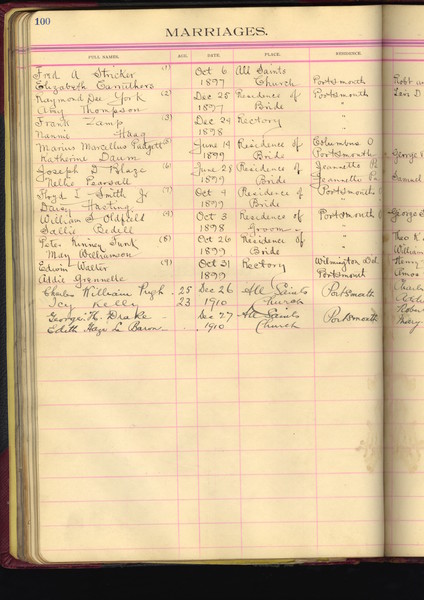 100
MARRIAGES.
FULL NAMES. AGE. DATE. PLACE. RESIDENCE.
Fred A Stricker (1) Oct 6 All Saints
Elizabeth Carruthers 1897 Church Portsmouth
Raymond Dee York (2) Dec 25 Residence of Portsmouth
Amy Thompson 1897 Bride "
Frank Zamp (3) Dec 24 Rectory "
Nannie Haag 1898 "
Marius Marcellus Padgett June 14 Residence of Columbus O
Katherine Daum 1899 Bride Portsmouth George
Joseph D Blaze (6) June 28 Residence of Jeannette
Nellie Pearsall 1899 Bride Jeannette Samuel
Floyd L Smith Jr (7) Oct 4 Residence of Portsmouth
Daisy 1899 Bride "
William S Oldfield (4) Oct 3 Residence of Portsmouth George
Sallie Bedell 1898 Groom "
Peter Kinney (8) Oct 26 Residence of " Theo
May Williamson 1899 Bride " William
Edwin Walter (9) Oct 31 Rectory Wilmington Del. Henry
Addie Grennelle 1899 Portsmouth Amos
Charles William Pugh 25 Dec 26 All Saints Portsmouth
Icy Kelly 23 1910 Church
George H. Drake Dec 27 All Saints Portsmouth
Edith Le Baron 1910 Church